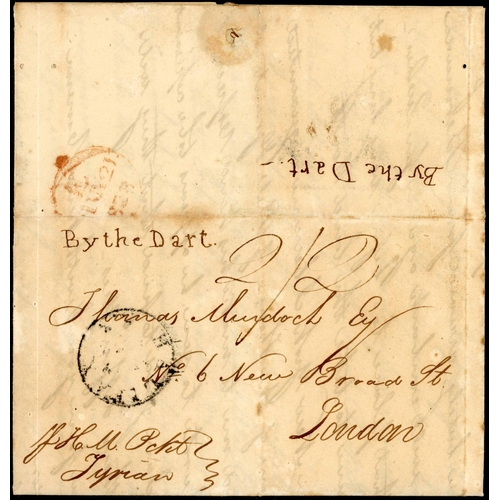 By the Dart.-
By the Dart.
2/2
Thomas Murdoch Esq
No. 6 New Broad St
London
p H.M. Pckt
Tyrian